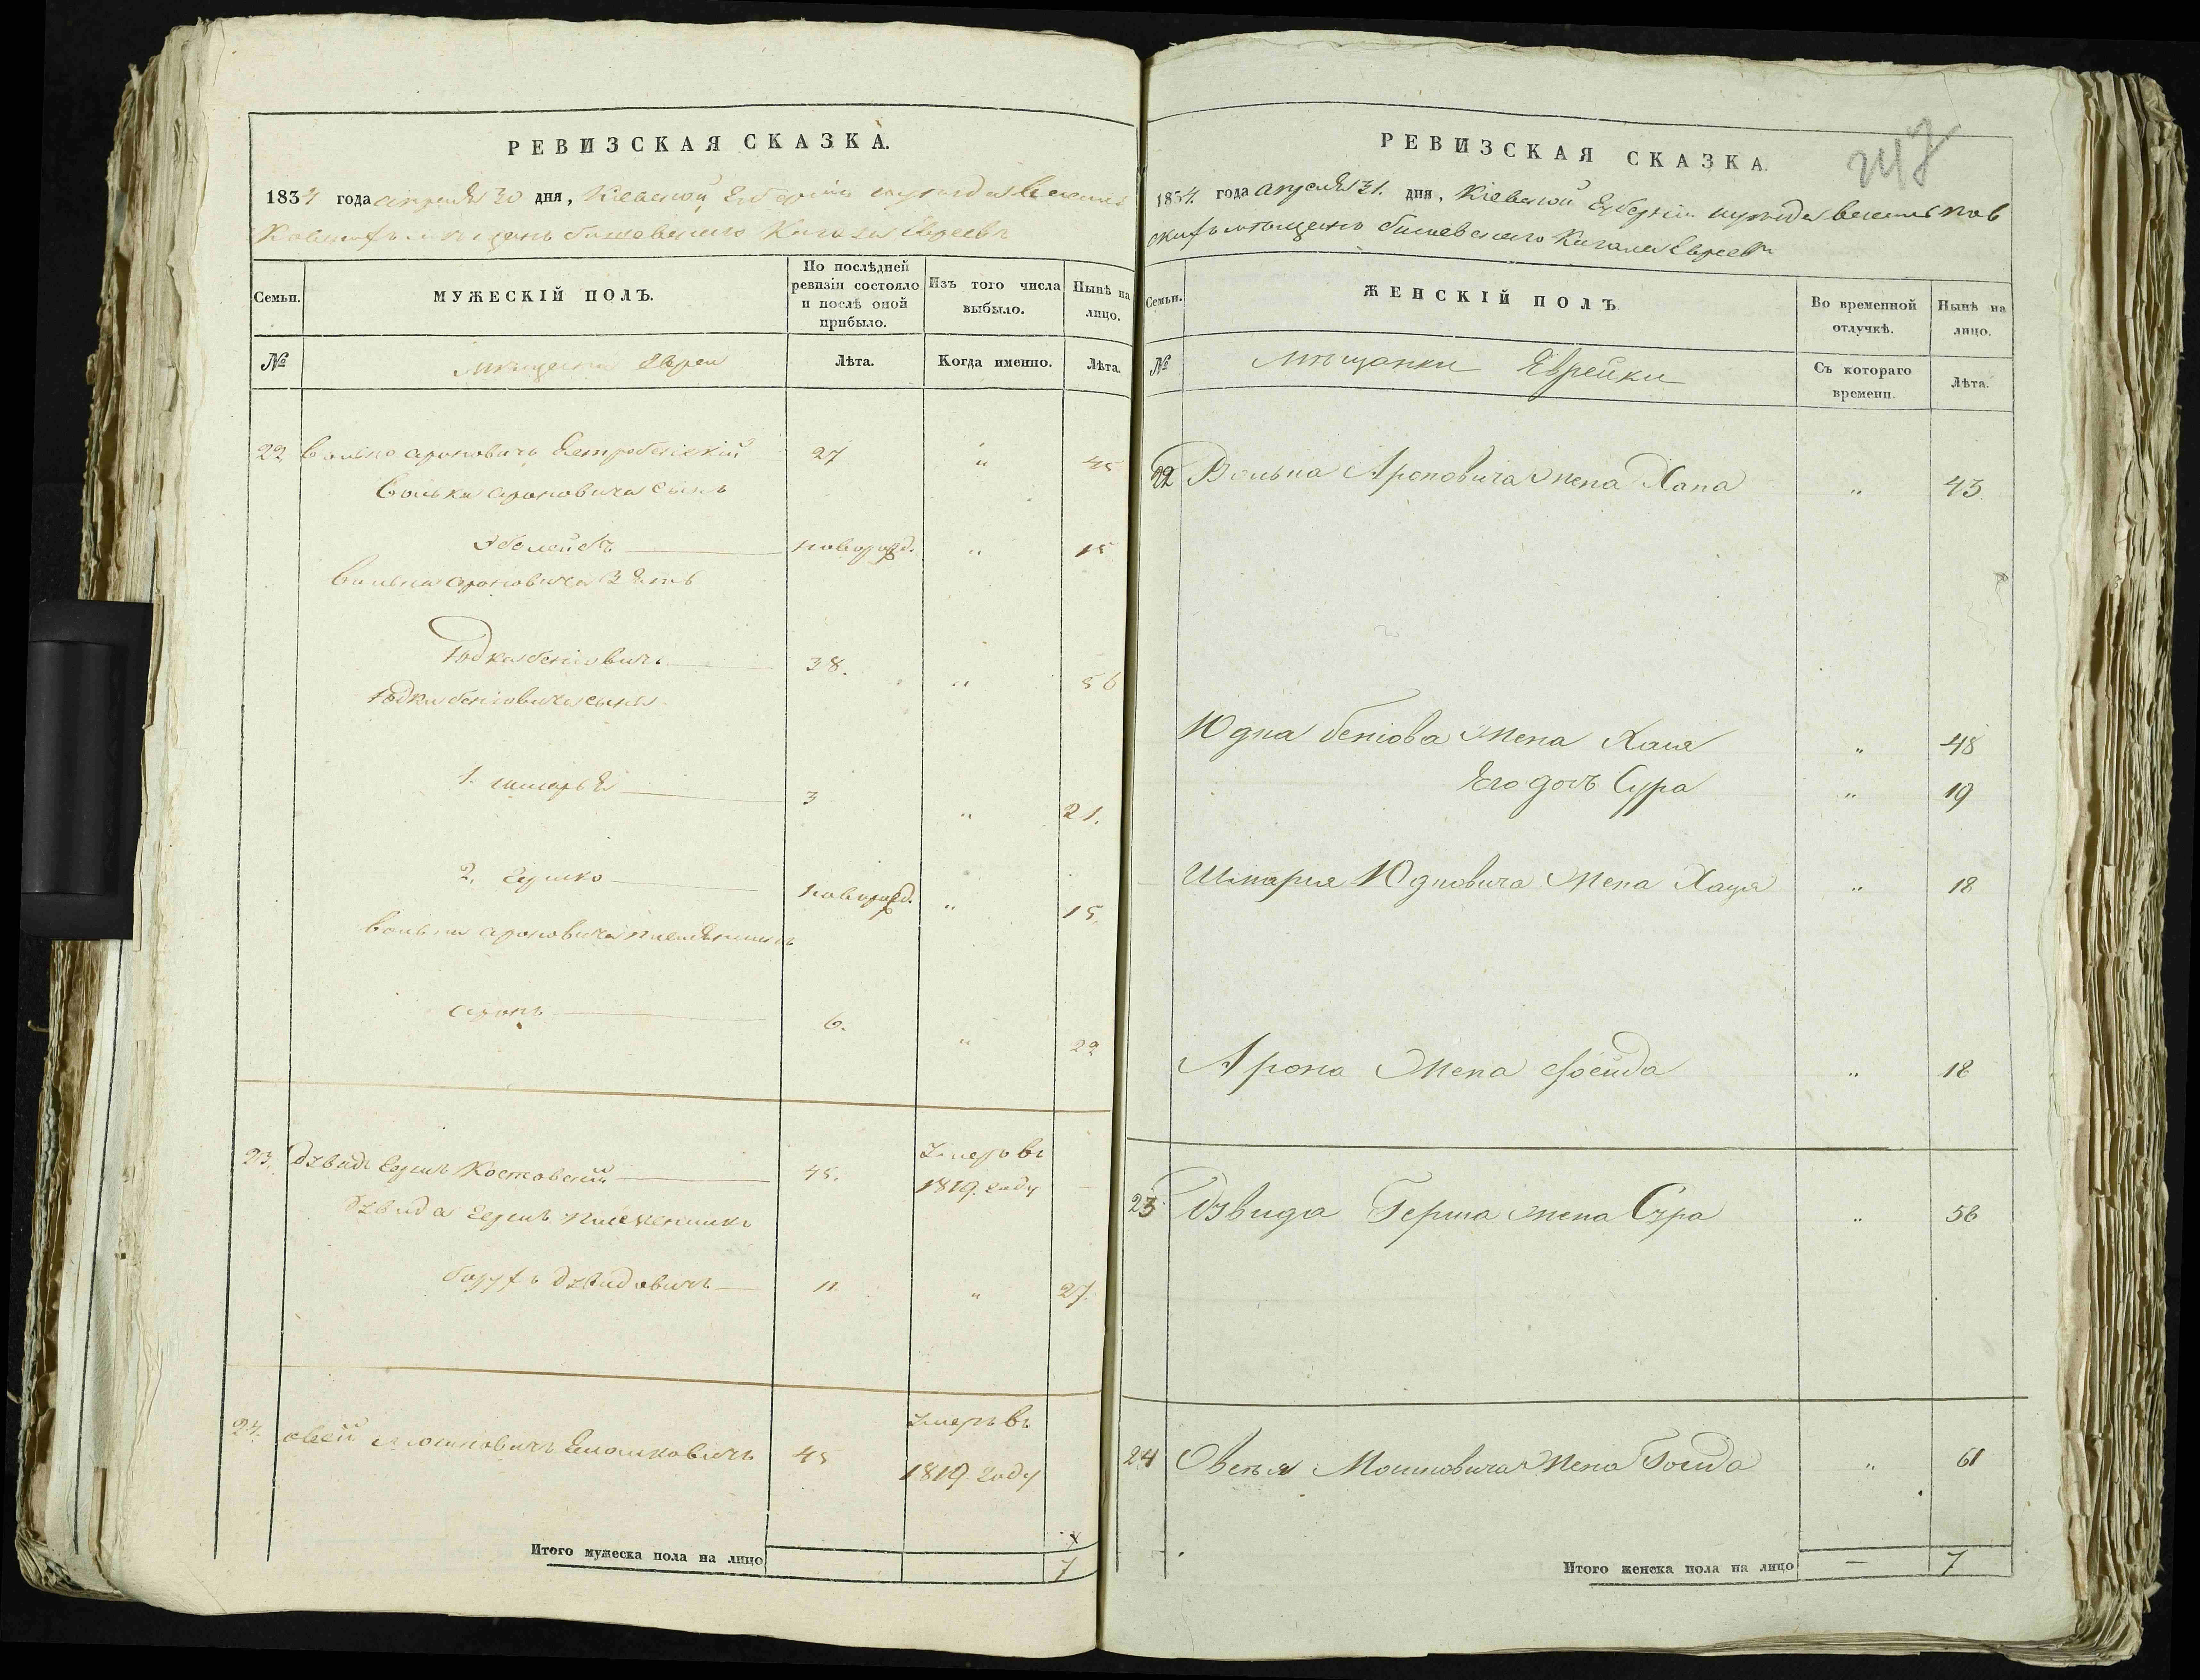 РЕВИЗСКАЯ СКАЗКА.
1834 года апреля 30 дня, Кіевской Губерніи уезда Василь
ковскихъ мѣщанъ Кагала Евреевъ
Семьи.
МУЖЕСКІЙ ПОЛЪ.
По послѣдней ревизіи состояло и послѣ оной прибыло.
Изъ того числа выбыло.
Нынѣ на лицо.
№
мѣщане Евреи
Лѣта.
Когда именно.
Лѣта.
22 Волько Ароновичъ 27 " 45
Волька Ароновича сынъ
новорожд. " 15
Волька Ароновича зять
Юдка Беніовичъ 38. " 56
Юдки Беніовича сыны
1. Шмарья 3 " 21.
2. Гершко новорожд. " 15.
Волька Ароновича племянникъ
Аронъ 6. " 22
23. Дувидъ Гершъ Костовскій 45. умеръ въ 1819. году —
Дувида Герша племенникъ
Борухъ Дувидовичъ 11 " 27.
24. Овсей Мошковичъ 45 умеръ въ 1819 году
Итого мужеска пола на лицо 7
РЕВИЗСКАЯ СКАЗКА.
247
1834. года апреля 31. дня, Кіевской Губерніи уезда Васильков
скихъ мѣщанъ Кагала Евреевъ
Семьи.
ЖЕНСКІЙ ПОЛЪ
Во временной отлучкѣ.
Нынѣ на лицо.
№
Мѣщанки Еврейки
Съ котораго времени.
Лѣта.
22 Волька Ароновича жена Хана " 43
Юдка Беніова жена Хая " 48
Его дочь Сура " 19
Шмарья Юдковича жена Хая " 18
Арона жена Фейда " 18
23 Дувида Герша жена Сура " 56
24 Овсея Мошковича жена " 61
Итого женска пола на лицо — 7